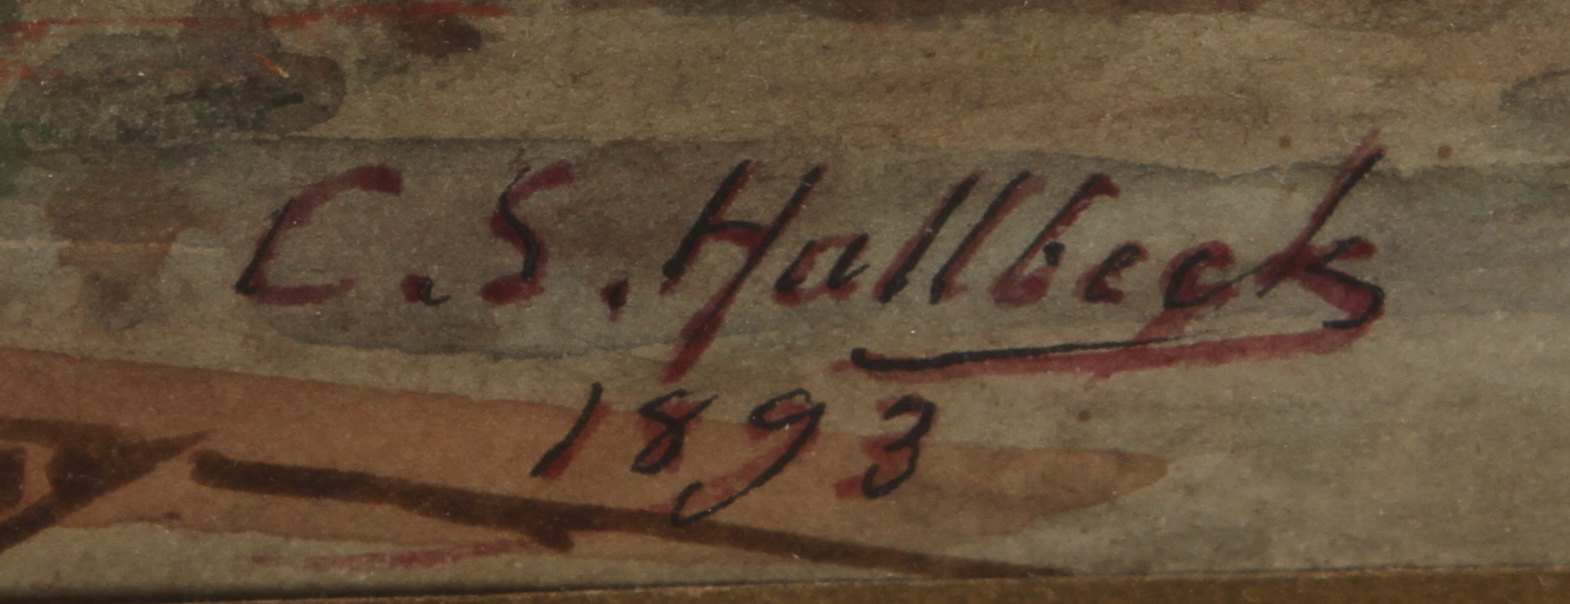 C. S. Hallbeck
1893